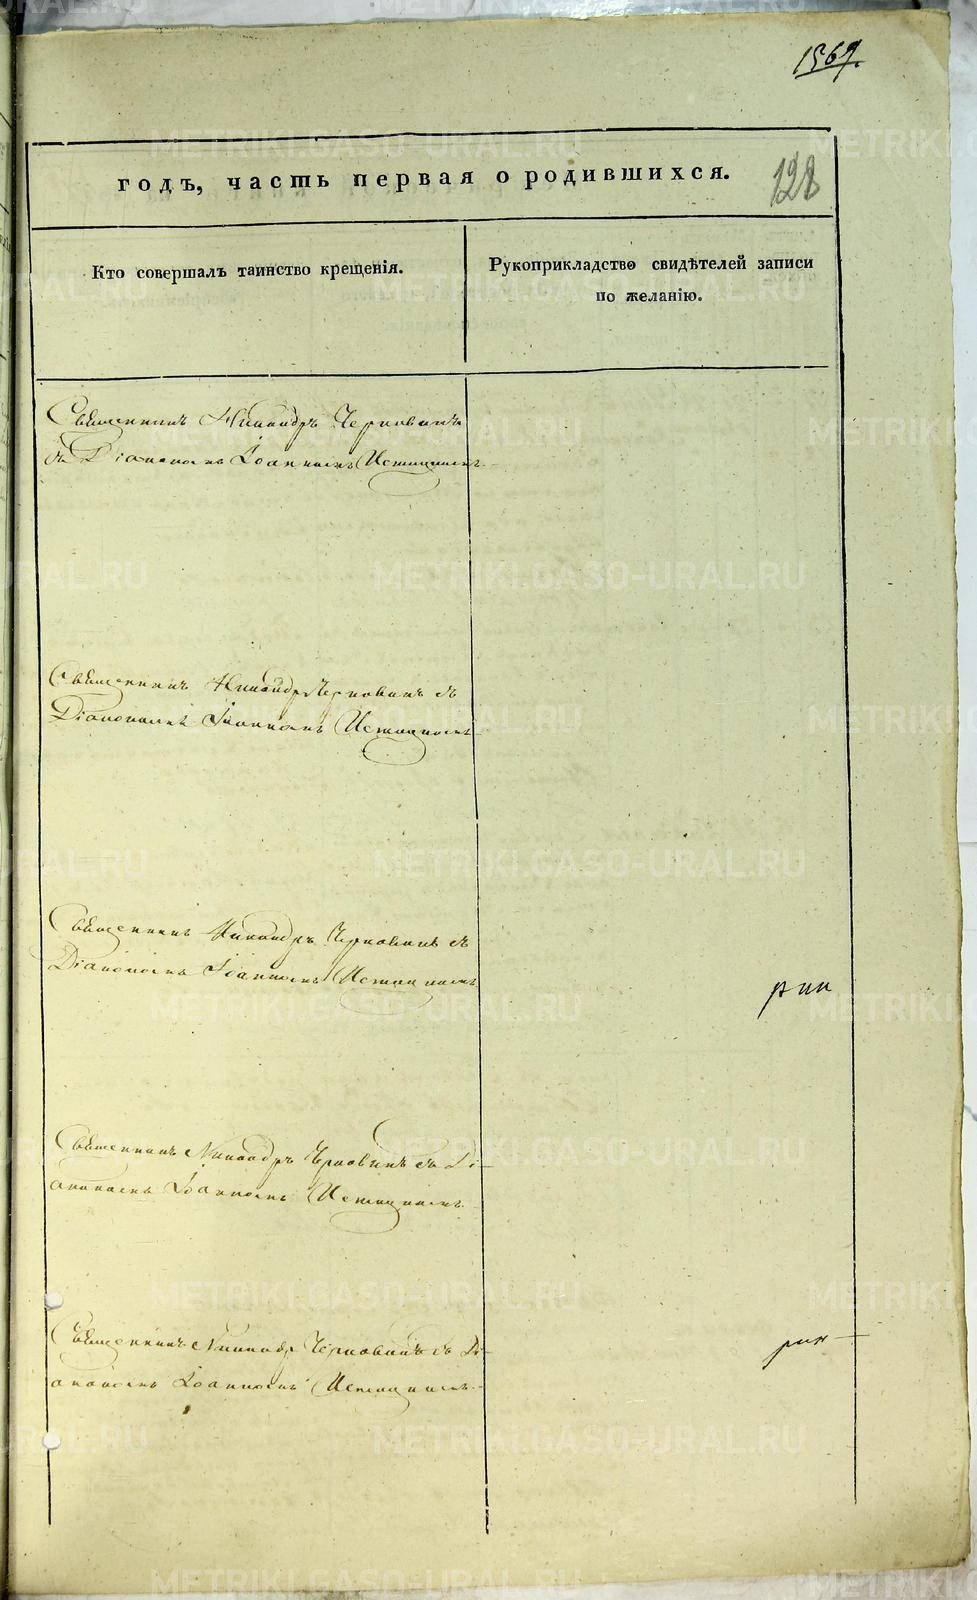 1569.
128
годъ, часть первая о родившихся.
Кто совершалъ таинство крещенія.
Рукоприкладство свидѣтелей записи
по желанію.
Священникъ Никандръ Черновинъ
съ Діакономъ Іоанномъ Истоминымъ
Священникъ Никандръ Черновинъ съ
Діакономъ Іоанномъ Истоминымъ
Священникъ Никандръ Черновинъ съ
Діакономъ Іоанномъ Истоминымъ
рпп
Священникъ Никандръ Черновинъ съ Ді-
акономъ Іоанномъ Истоминымъ
Священникъ Никандръ Черновинъ съ Ді-
акономъ Іоанномъ Истоминымъ
METRIKI.GASO-URAL.RU